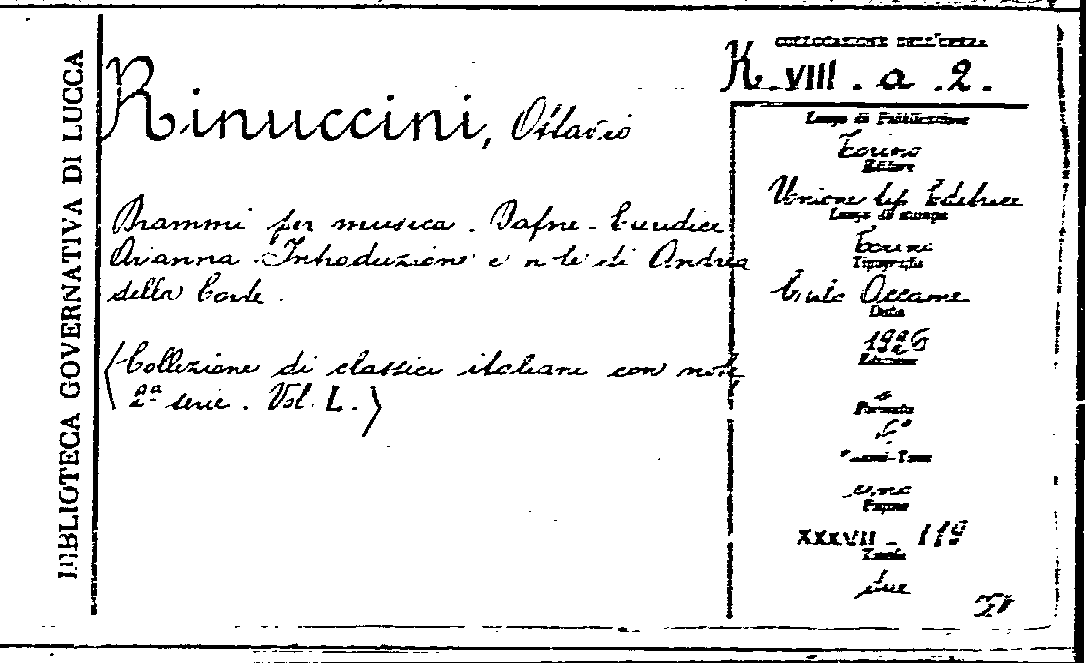 BIBLIOTECA GOVERNATIVA DI LUCCA
COLLOCAZIONE DELL'OPERA
K. VIII. a. 2.
Rinuccini, Ottavio
Drammi per musica. Dafne - Euridice
Arianna. Introduzione e note di Andrea
della Corte.
(Collezione di classici italiani con note
2ª serie. Vol. L.)
Luogo di Pubblicazione
Torino
Editore
Unione tip. Editrice
Luogo di stampa
Torino
Tipografia
Data
1926
Edizione
Formato
8°
uno
Pagine
XXXVII - 119
Tavole
due